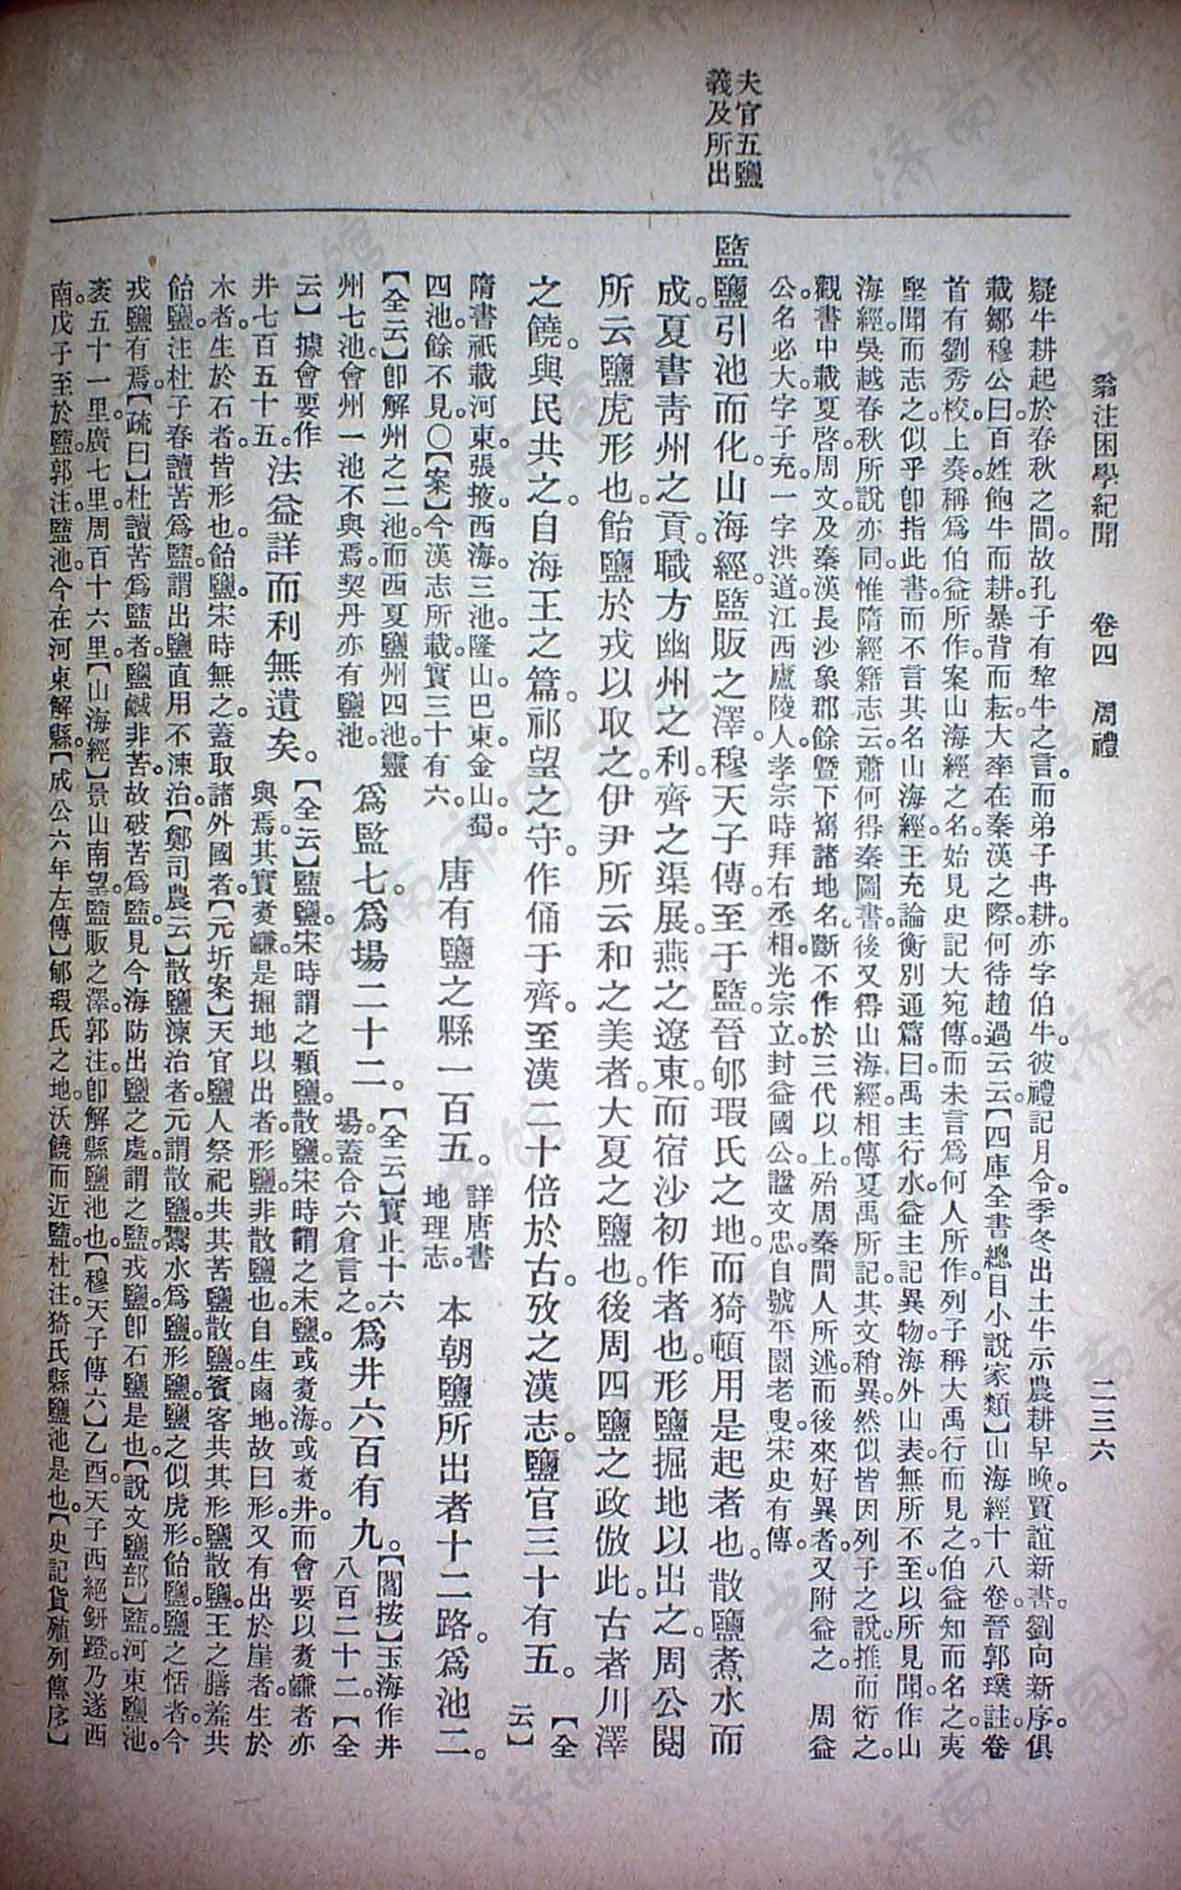 翁注困學紀聞 卷四 周禮 二三六
夫官五鹽
義及所出
疑牛耕起於春秋之間。故孔子有犂牛之言。而弟子冉耕。亦字伯牛。彼禮記月令。季冬出土牛示農耕早晚。賈誼新書。劉向新序。俱
載鄒穆公曰。百姓飽牛而耕。暴背而耘。大率在秦漢之際。何待趙過云云【四庫全書總目小說家類】山海經十八卷。晉郭璞註。卷
首有劉秀校上奏。稱爲伯益所作。案山海經之名。始見史記大宛傳。而未言爲何人所作。列子稱大禹行而見之。伯益知而名之。夷
堅聞而志之。似乎卽指此書。而不言其名山海經。王充論衡別通篇曰。禹主行水。益主記異物。海外山表。無所不至。以所見聞。作山
海經。吳越春秋所說亦同。惟隋經籍志云。蕭何得秦圖書。後又得山海經。相傳夏禹所記。其文稍異。然似皆因列子之說。推而衍之。
觀書中載夏啓。周文。及秦漢長沙象郡。餘暨下雋諸地名。斷不作於三代以上。殆周秦間人所述。而後來好異者。又附益之 周益
公。名必大。字子充。一字洪道。江西廬陵人。孝宗時拜右丞相。光宗立。封益國公。諡文忠。自號平園老叟。宋史有傳。
盬鹽引池而化。山海經。盬販之澤。穆天子傳。至于盬。晉郇瑕氏之地。而猗頓用是起者也。散鹽煮水而
成。夏書青州之貢。職方幽州之利。齊之渠展。燕之遼東。而宿沙初作者也。形鹽掘地以出之。周公閱
所云鹽虎形也。飴鹽於戎以取之。伊尹所云和之美者。大夏之鹽也。後周四鹽之政倣此。古者川澤
之饒。與民共之。自海王之篇。祁望之守。作俑于齊。至漢二十倍於古。攷之漢志。鹽官三十有五。【全云】
隋書祇載河東。張掖。西海三池。隆山。巴東。金山。蜀。
四池。餘不見。〇【案】今漢志所載。實三十有六。
唐有鹽之縣一百五。
詳唐書
地理志。
本朝鹽所出者十二路。爲池二。
【全云】卽解州之二池。而西夏鹽州四池。靈
州七池。會州一池不與焉。契丹亦有鹽池。
爲監七。爲場二十二。
【全云】實止十六
場。蓋合六倉言之。
爲井六百有九。
【閻按】玉海作井
八百二十二。【全
云】據會要作
井七百五十五。
法益詳而利無遺矣。
【全云】盬鹽。宋時謂之顆鹽。散鹽。宋時謂之末鹽。或煑海。或煑井。而會要以煑鹻者亦
與焉。其實煑鹻。是掘地以出者。形鹽。非散鹽也。自生鹵地。故曰形。又有出於崖者。生於
木者。生於石者。皆形也。飴鹽。宋時無之。蓋取諸外國者。【元圻案】天官鹽人祭祀共其苦鹽散鹽。賓客共其形鹽散鹽。王之膳羞共
飴鹽。注杜子春讀苦爲盬。謂出鹽直用不湅治。【鄭司農云】散鹽。湅治者。元謂散鹽。鬻水爲鹽。形鹽。鹽之似虎形。飴鹽。鹽之恬者。今
戎鹽有焉。【疏曰】杜讀苦爲盬者。鹽鹹非苦。故破苦爲盬。見今海防出鹽之處。謂之盬。戎鹽。卽石鹽是也。【說文鹽部】盬。河東鹽池。
袤五十一里。廣七里。周百十六里。【山海經】景山南望。盬販之澤。郭注。卽解縣鹽池也。【穆天子傳六】乙酉。天子西絕鈃隥。乃遂西
南。戊子至於鹽。郭注。盬池。今在河東解縣。【成公六年左傳】郇瑕氏之地。沃饒而近盬。杜注。猗氏縣鹽池是也。【史記貨殖列傳序】